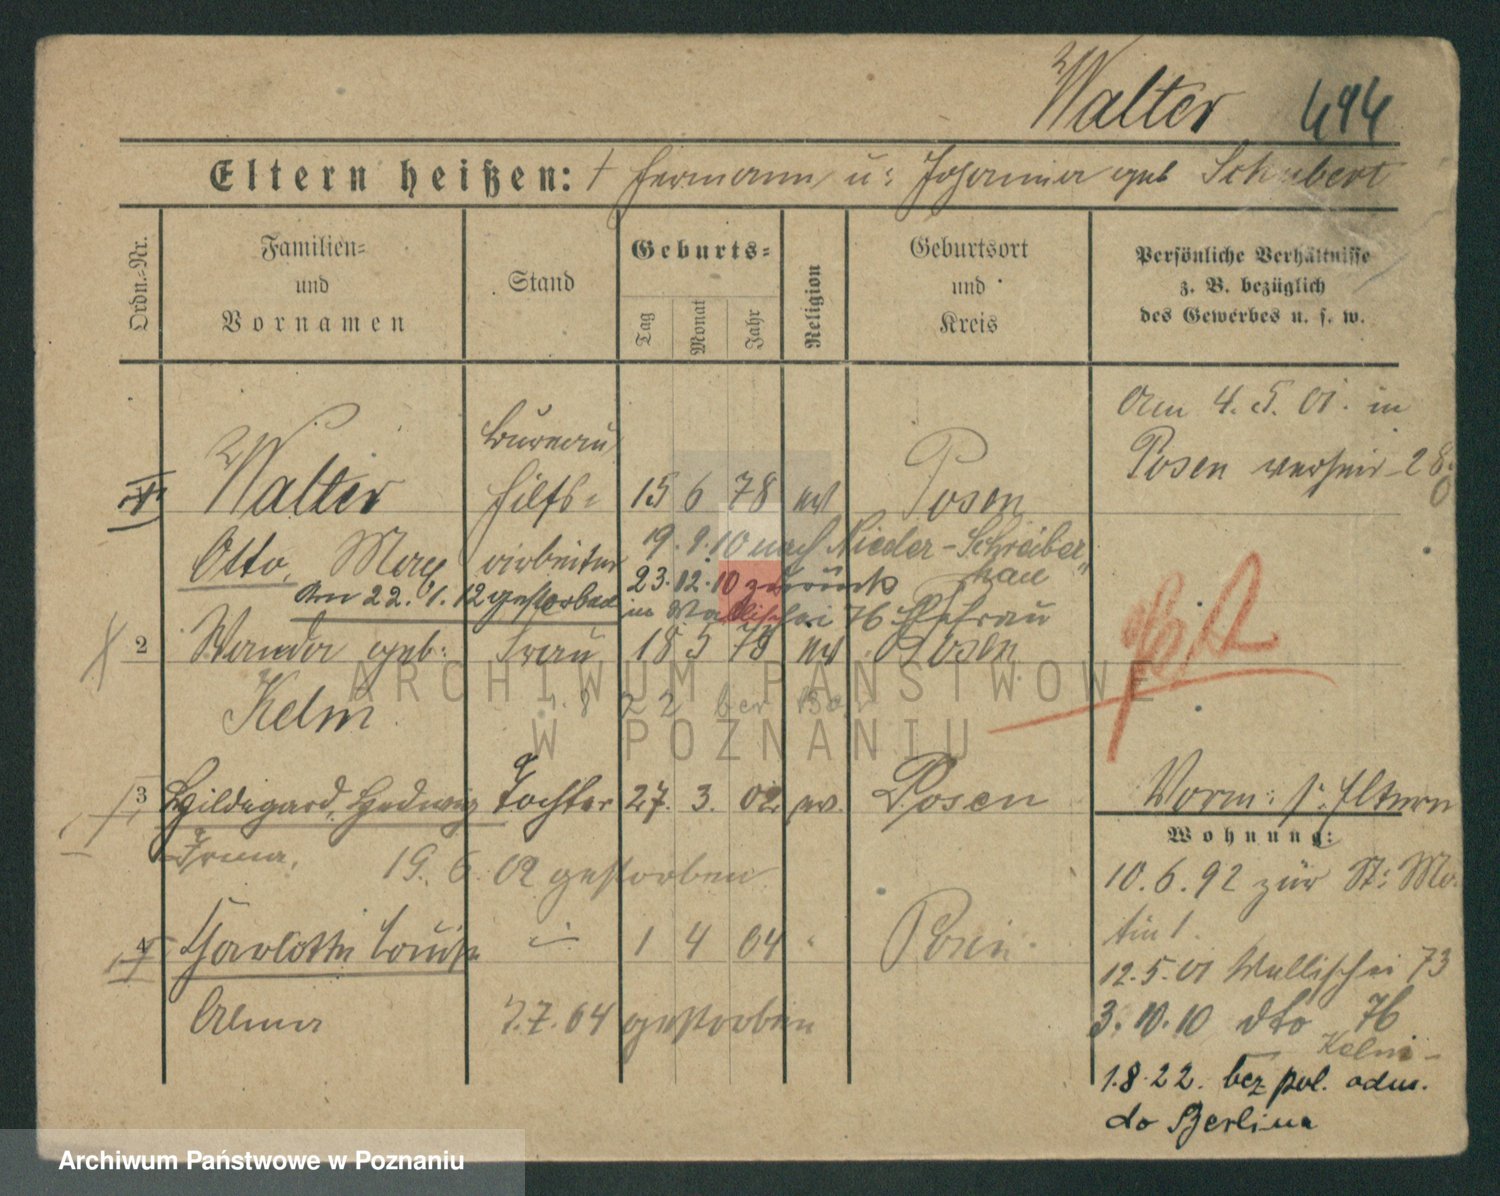 Walter 494
Eltern heißen: † Hermann u: Johanna geb Schubert
Ordn.=Nr.
Familien=
und
Vornamen
Stand
Geburts=
Tag
Monat
Jahr
Religion
Geburtsort
und
Kreis
Persönliche Verhältnisse
z. B. bezüglich
des Gewerbes u. s. w.
Am 4. 5. 01. in
Posen verheir
Bureau
Walter Hilfs= 15 6 78 ev Posen
Otto, Max arbeiter 19. 9. 10 nach Nieder-Schreiber
hau
23. 12. 10 zurück
Am 22. 1. 12 gestorben in Wallischei 76 Ehefrau
2 Wanda geb. Frau 18 5 79 ev Posen
Kelm
8 22
3 Hildegard, Hedwig Tochter 27. 3. 02 ev. Posen
Irma. 19. 6 02 gestorben
4 Charlotte Louise 1 4 04 Posen
Alma 7. 7. 04 gestorben
Vorm: s. Eltern
Wohnung:
10. 6. 92 zür St: Ma
tin 1.
12. 5. 01 Wallischei 73
3. 10. 10 dto 76
Kelm
1. 8. 22. bez pol. adm.
do Berlina
ARCHIWUM PAŃSTWOWE
W POZNANIU
Archiwum Państwowe w Poznaniu